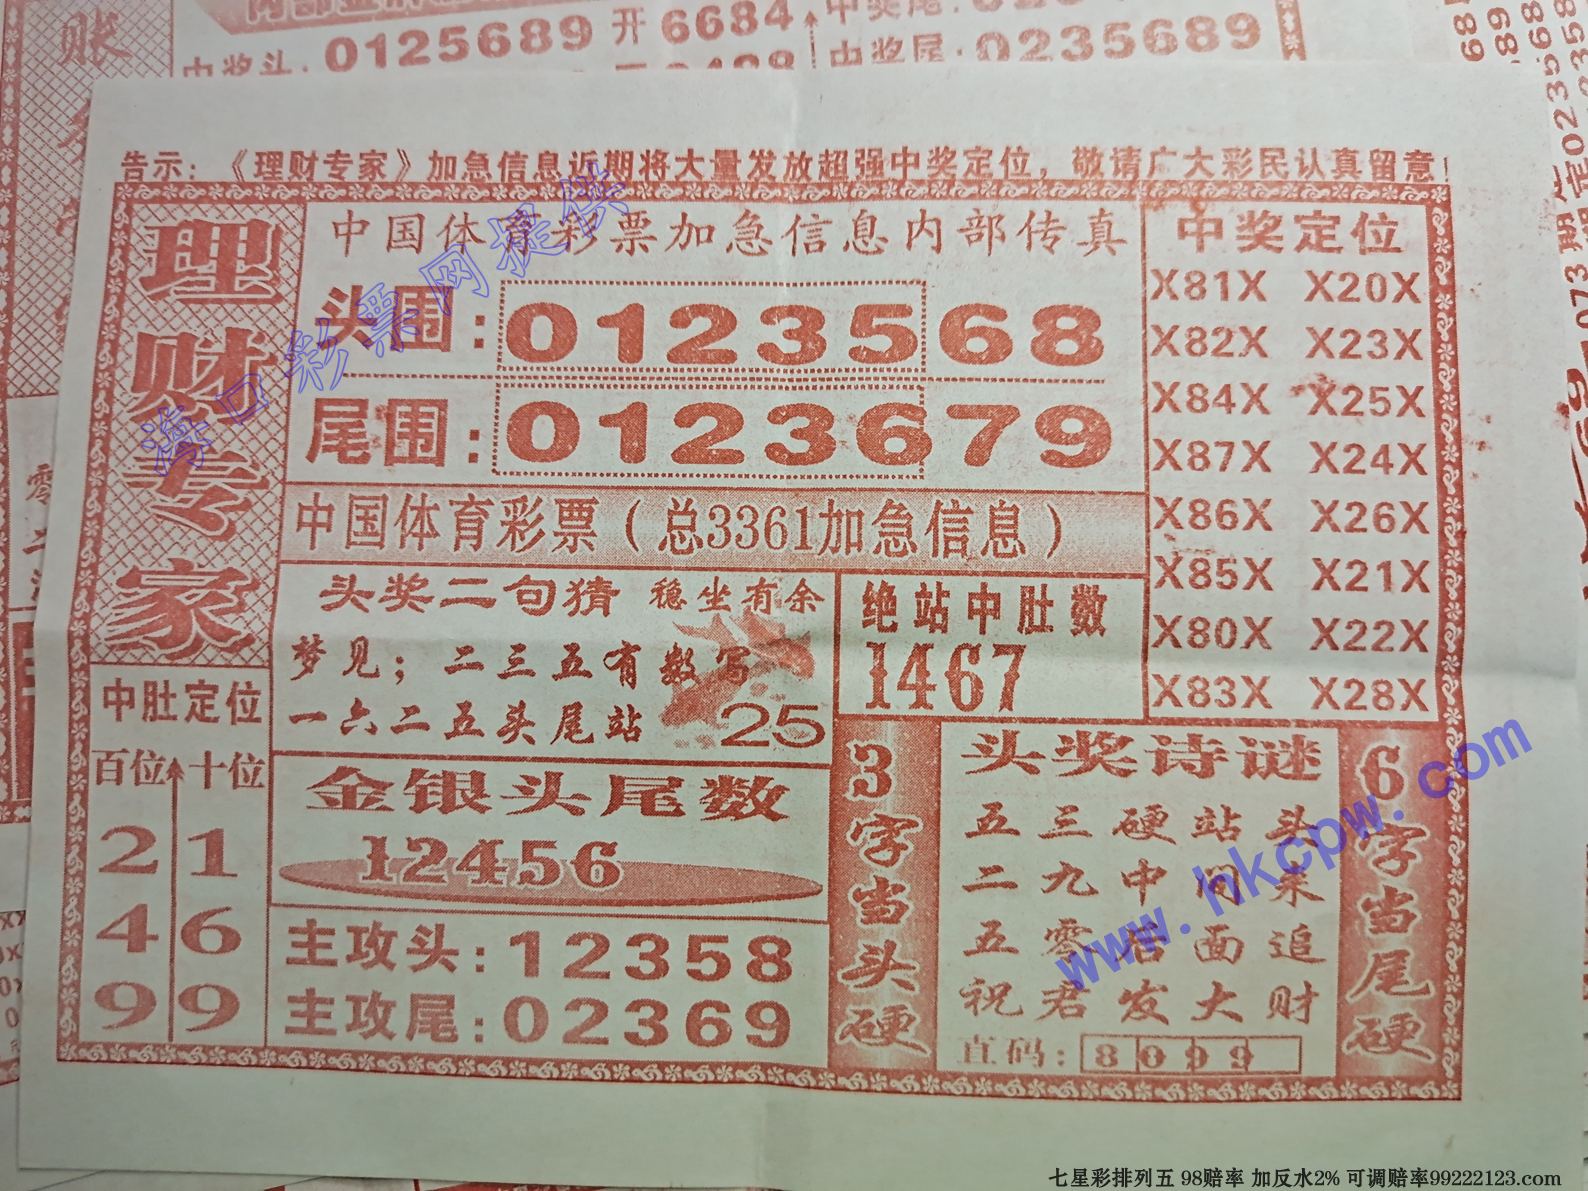 账
中奖头:0125689开6684
中奖尾:0235689
告示：《理财专家》加急信息近期将大量发放超强中奖定位，敬请广大彩民认真留意!
理财专家
中国体育彩票加急信息内部传真
头围:0123568
尾围:0123679
中国体育彩票(总3361加急信息)
中奖定位
X81X X20X
X82X X23X
X84X X25X
X87X X24X
X86X X26X
X85X X21X
X80X X22X
X83X X28X
头奖二句猜 稳坐有余
梦见；二三五有数写
一六二五头尾站
25
绝站中肚数
1467
中肚定位
百位 十位
2 1
4 6
9 9
金银头尾数
12456
主攻头:12358
主攻尾:02369
3字当头硬
头奖诗谜
五三硬站头
二九中间来
五零后面追
祝君发大财
直码:8099
6字当尾硬
海口彩票网提供
www.hkcpw.com
七星彩排列五 98赔率 加反水2% 可调赔率99222123.com